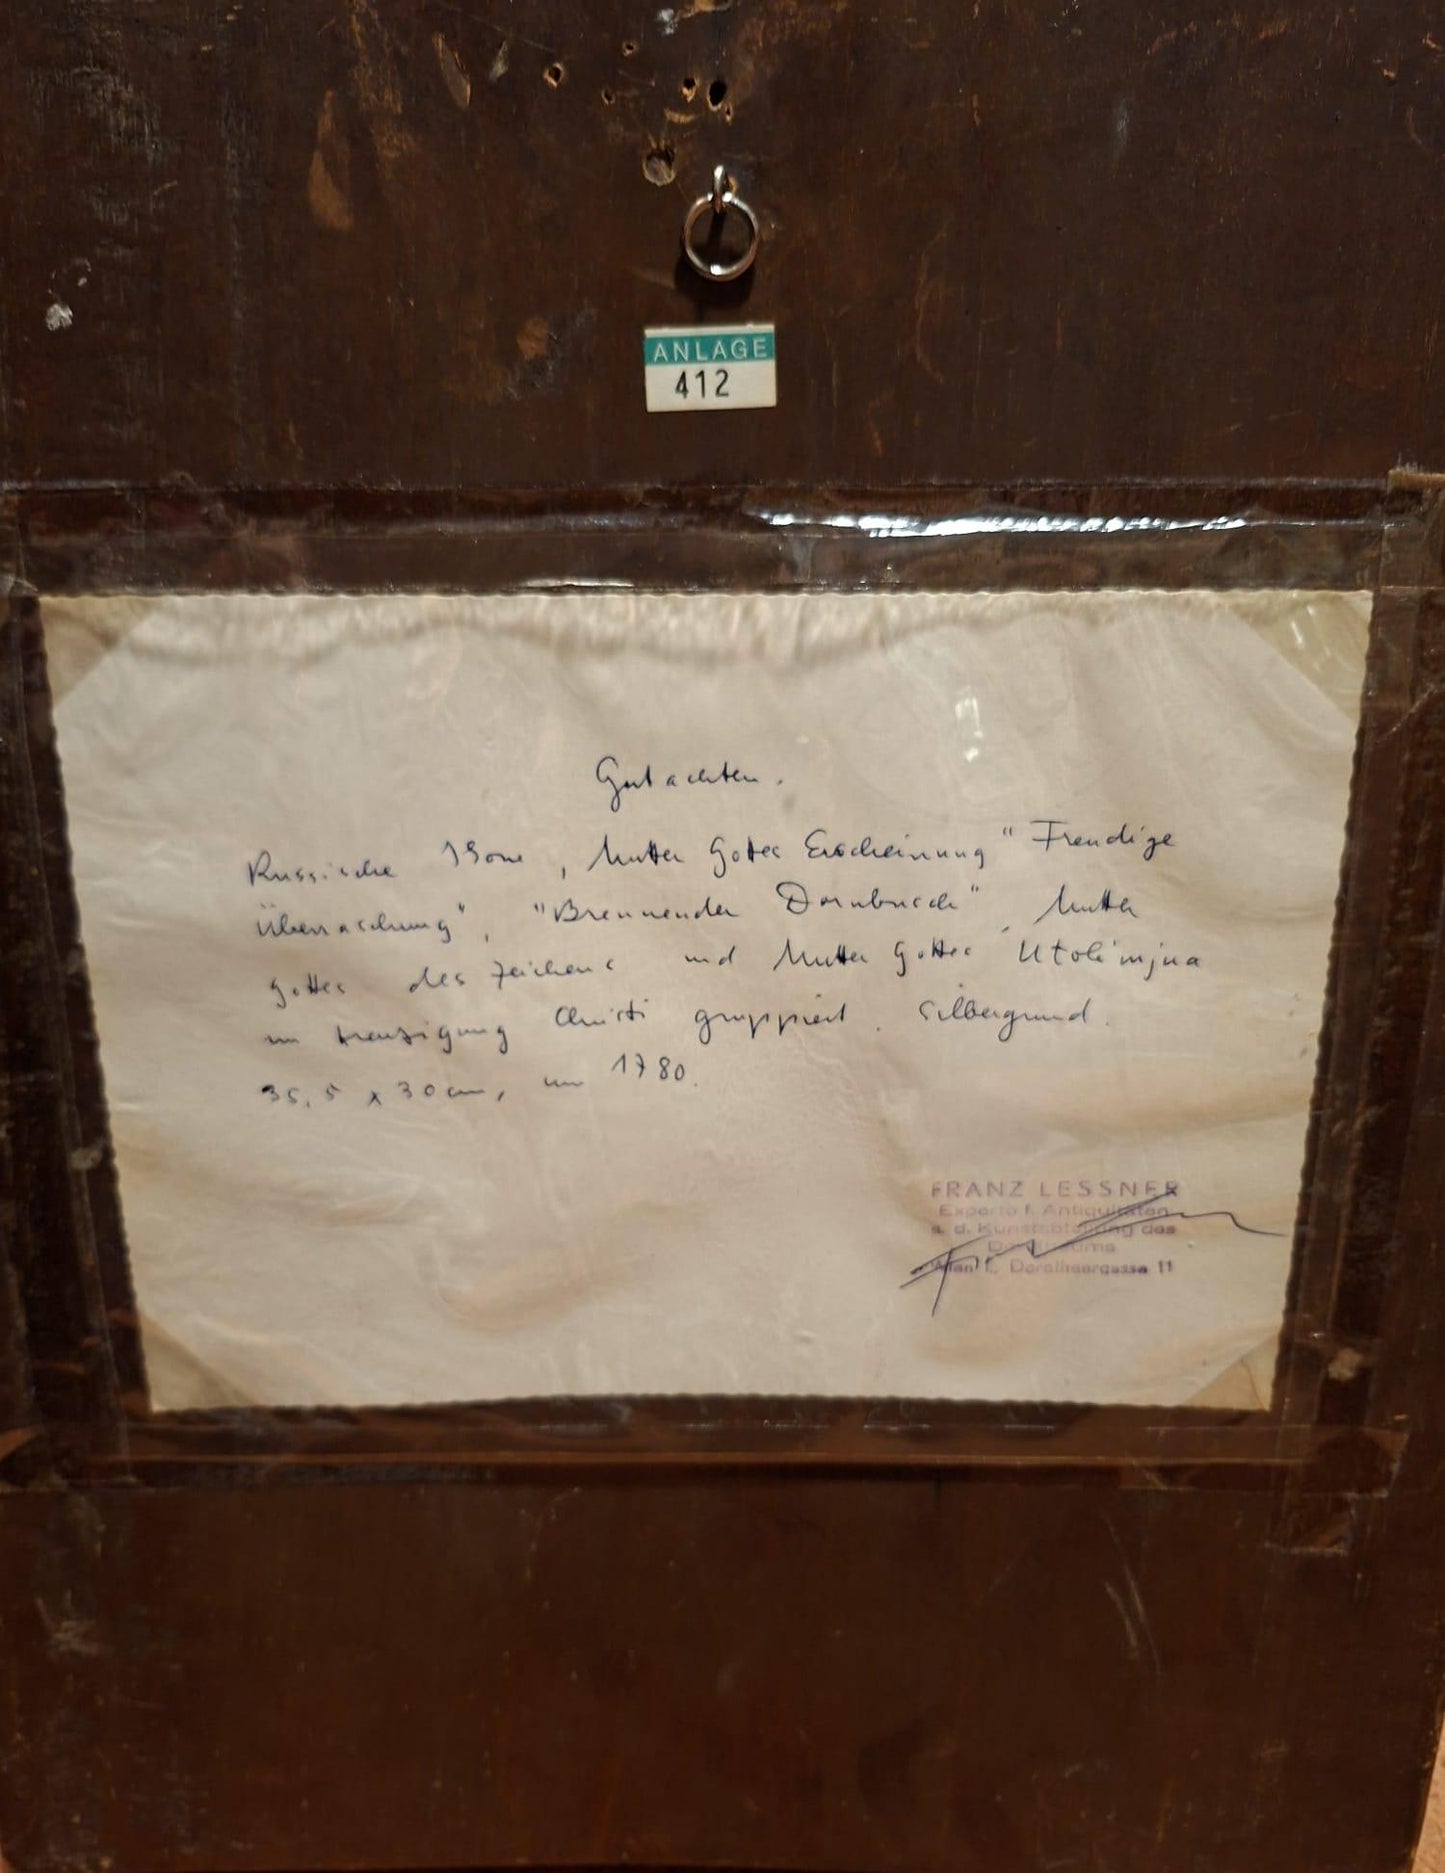 ANLAGE
412
Gutachten.
Russische Ikone, Mutter Gottes Erscheinung "Freudige
Überraschung", "Brennender Dornbusch", Mutter
Gottes des Zeichens und Mutter Gottes Utolimjua
um Kreuzigung Christi gruppiert. Silbergrund.
35,5 x 30 cm, um 1780.
FRANZ LESSNER
Experte f. Antiquitäten
a. d. Kunstabteilung des
Dorotheums
Wien I., Dorotheergasse 11